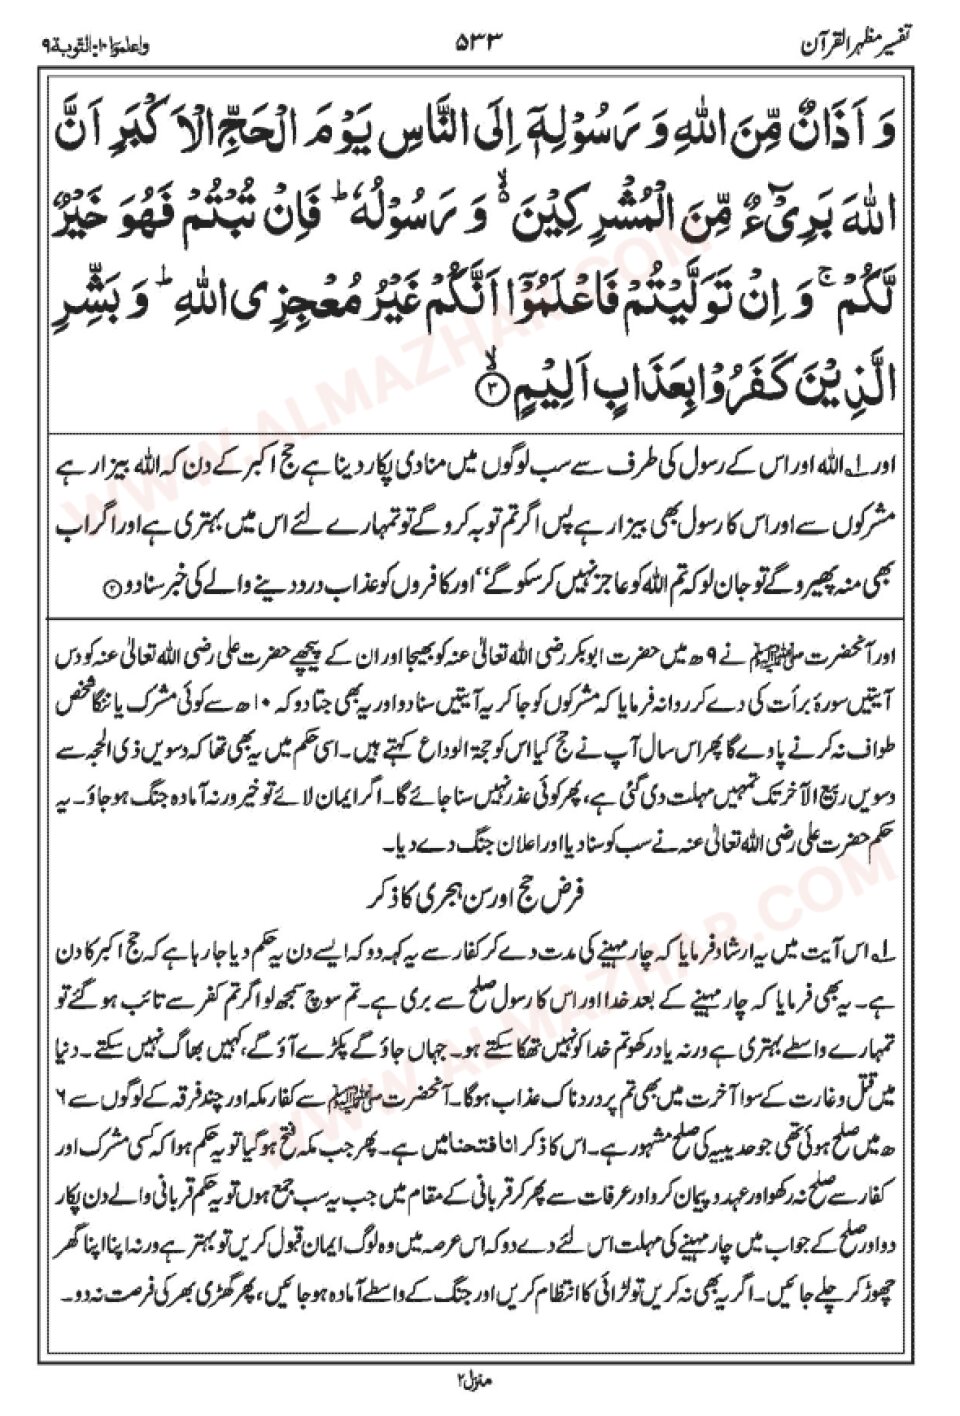 تفسیر مظہر القرآن
۵۳۳
واعلموا۱۰: التوبۃ۹
وَ اَذَانٌ مِّنَ اللّٰهِ وَ رَسُوْلِهٖۤ اِلَى النَّاسِ يَوْمَ الْحَجِّ الْاَكْبَرِ اَنَّ
اللّٰهَ بَرِیْٓءٌ مِّنَ الْمُشْرِكِيْنَ ۙ۬ وَ رَسُوْلُهٗ ؕ فَاِنْ تُبْتُمْ فَهُوَ خَيْرٌ
لَّكُمْ ۚ وَ اِنْ تَوَلَّيْتُمْ فَاعْلَمُوْۤا اَنَّكُمْ غَيْرُ مُعْجِزِی اللّٰهِ ؕ وَ بَشِّرِ
الَّذِيْنَ كَفَرُوْا بِعَذَابٍ اَلِيْمٍ ۙ﴿۳﴾
اور ۱؂ اللہ اور اس کے رسول کی طرف سے سب لوگوں میں منادی پکار دینا ہے حج اکبر کے دن کہ اللہ بیزار ہے
مشرکوں سے اور اس کا رسول بھی بیزار ہے پس اگر تم توبہ کرو گے تو تمہارے لئے اس میں بہتری ہے اور اگر اب
بھی منہ پھیرو گے تو جان لو کہ تم اللہ کو عاجز نہیں کر سکو گے‘‘ اور کافروں کو عذاب درد دینے والے کی خبر سنا دو ۳
اور آنحضرت ﷺ نے ۹ ھ میں حضرت ابوبکر رضی اللہ تعالیٰ عنہ کو بھیجا اور ان کے پیچھے حضرت علی رضی اللہ تعالیٰ عنہ کو دس
آیتیں سورۂ برأت کی دے کر روانہ فرمایا کہ مشرکوں کو جا کر یہ آیتیں سنا دو اور یہ بھی جتا دو کہ ۱۰ ھ سے کوئی مشرک یا ننگا شخص
طواف نہ کرنے پاوے گا پھر اس سال آپ نے حج کیا اس کو حجۃ الوداع کہتے ہیں۔ اسی حکم میں یہ بھی تھا کہ دسویں ذی الحجہ سے
دسویں ربیع الآخر تک تمہیں مہلت دی گئی ہے، پھر کوئی عذر نہیں سنا جائے گا۔ اگر ایمان لائے تو خیر ورنہ آمادہ جنگ ہو جاؤ۔ یہ
حکم حضرت علی رضی اللہ تعالیٰ عنہ نے سب کو سنا دیا اور اعلان جنگ دے دیا۔
فرض حج اور سن ہجری کا ذکر
۱؂ اس آیت میں یہ ارشاد فرمایا کہ چار مہینے کی مدت دے کر کفار سے یہ کہہ دو کہ ایسے دن یہ حکم دیا جا رہا ہے کہ حج اکبر کا دن
ہے۔ یہ بھی فرمایا کہ چار مہینے کے بعد خدا اور اس کا رسول صلح سے بری ہے۔ تم سوچ سمجھ لو اگر تم کفر سے تائب ہو گئے تو
تمہارے واسطے بہتری ہے ورنہ یاد رکھو تم خدا کو نہیں تھکا سکتے ہو۔ جہاں جاؤ گے پکڑے آؤ گے، کہیں بھاگ نہیں سکتے۔ دنیا
میں قتل و غارت کے سوا آخرت میں بھی تم پر دردناک عذاب ہوگا۔ آنحضرت ﷺ سے کفار مکہ اور چند فرقہ کے لوگوں سے ۶
ھ میں صلح ہوئی تھی جو حدیبیہ کی صلح مشہور ہے۔ اس کا ذکر انا فتحنا میں ہے۔ پھر جب مکہ فتح ہو گیا تو یہ حکم ہوا کہ کسی مشرک اور
کفار سے صلح نہ رکھو اور عہد و پیمان کرو اور عرفات سے پھر کر قربانی کے مقام میں جب یہ سب جمع ہوں تو یہ حکم قربانی والے دن پکار
دو اور صلح کے جواب میں چار مہینے کی مہلت اس لئے دے دو کہ اس عرصہ میں وہ لوگ ایمان قبول کریں تو بہتر ہے ورنہ اپنا اپنا گھر
چھوڑ کر چلے جائیں۔ اگر یہ بھی نہ کریں تو لڑائی کا انتظام کریں اور جنگ کے واسطے آمادہ ہو جائیں، پھر گھڑی بھر کی فرصت نہ دو۔
منزل۲
WWW.ALMAZHAR.COM
WWW.ALMAZHAR.COM